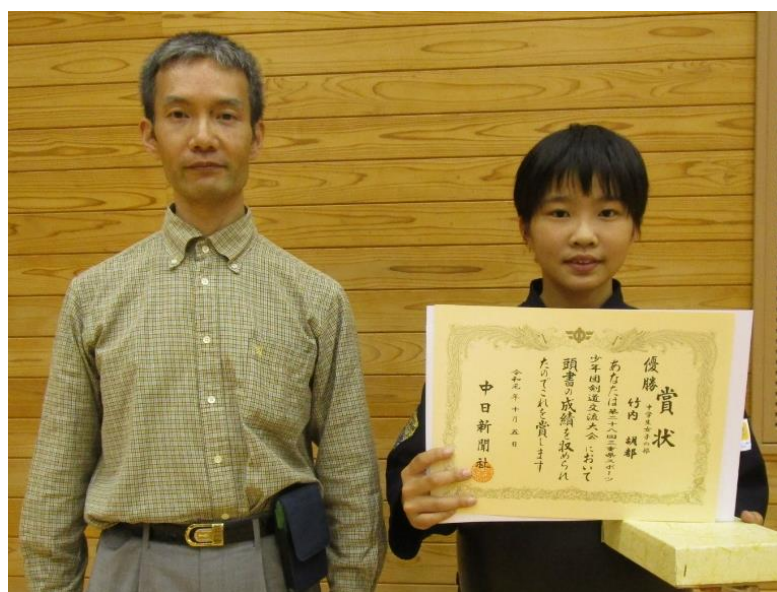 賞状
優勝
中学生女子の部
竹内 胡都
あなたは第二十八回三重県スポーツ
少年団剣道交流大会において
頭書の成績を収められ
たのでこれを賞します
令和元年十月五日
中日新聞社